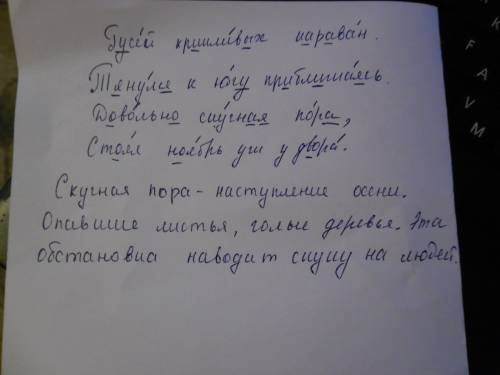 Гусе́й крикли́вых карава́н.
Тяну́лся к ю́гу приближа́ясь.
Дово́льно ску́чная по́ра,
Стоя́л ноя́брь уж у двора́.
Скучная пора - наступление осени.
Опавшие листья, голые деревья. Эта
обстановка наводит скуку на людей.